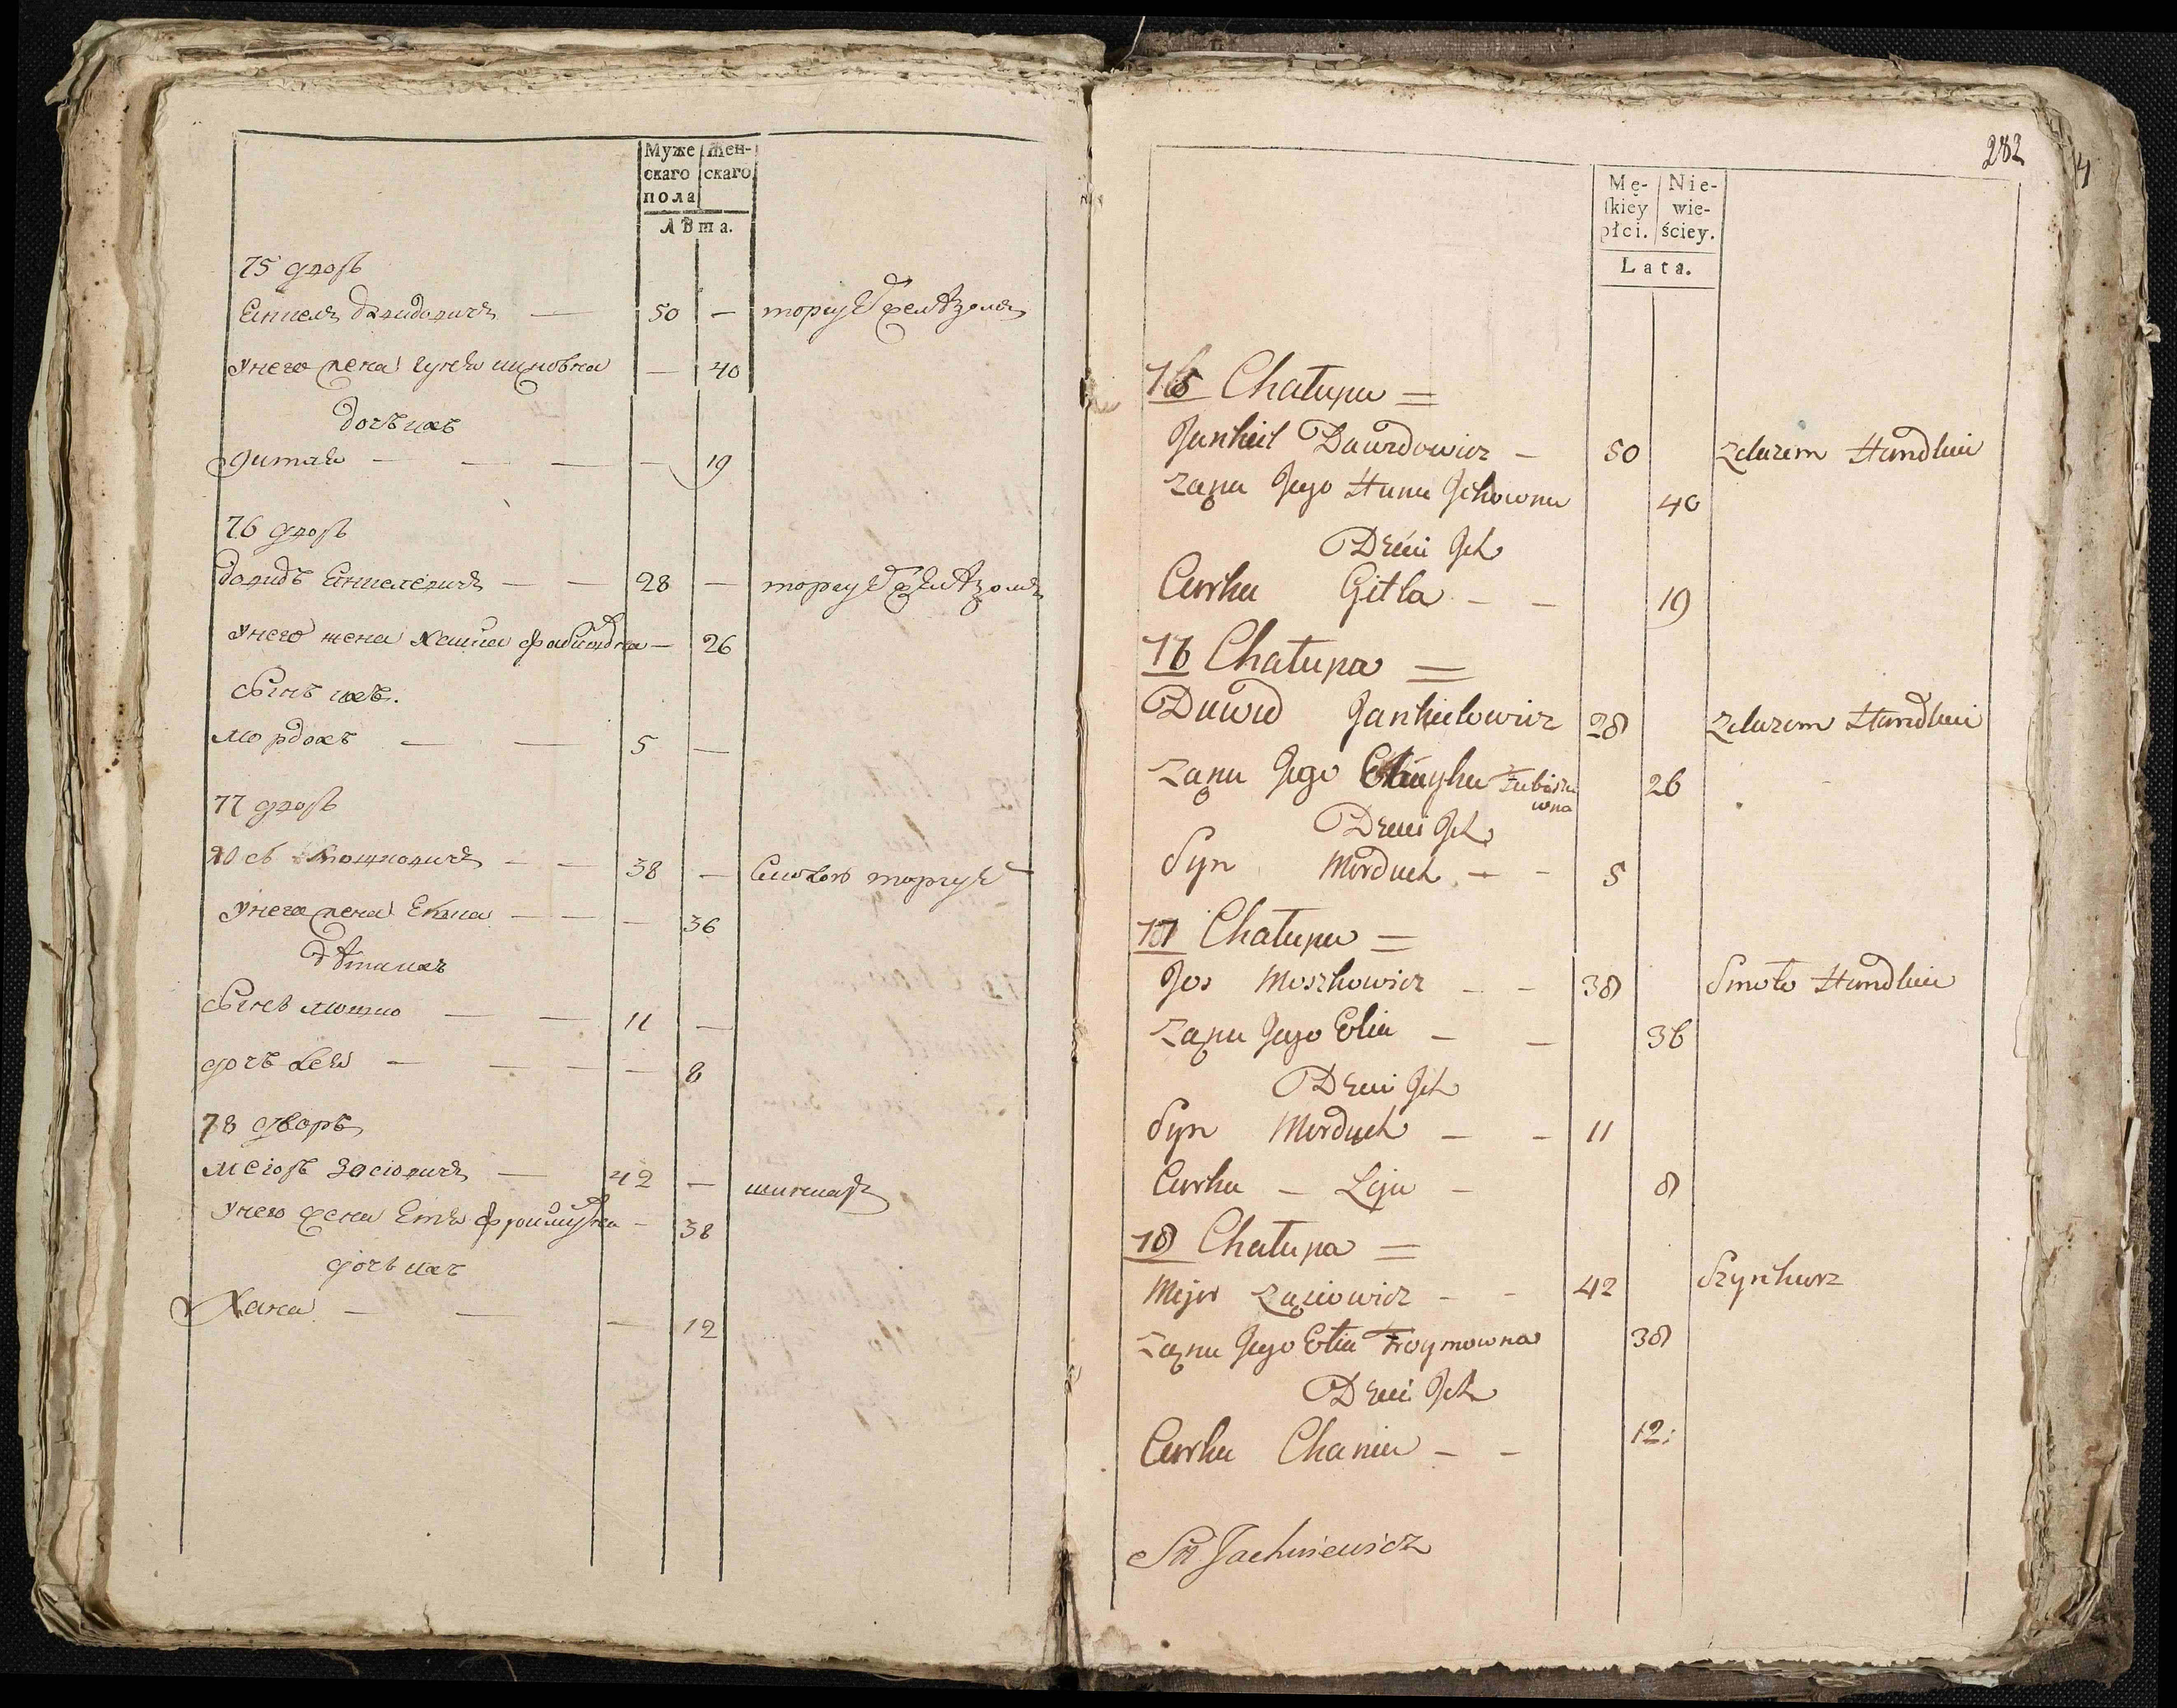 Муже
скаго
пола
Жен-
скаго
Лѣта.
75 дворъ
Янкель давидовичъ — 50 — торгуетъ желѣзомъ
унего жена — 40
дочь ихъ
гитля — — — — 19
76 дворъ
давидъ Янкелевичъ — — 28 — торгуетъ желѣзомъ
унего жена — 26
сынъ ихъ.
мордохъ — — 5 —
77 дворъ
Іосъ мошковичъ — — 38 — смолою торгуетъ
унего жена — — — 36
дѣти ихъ
сынъ мошко — — 11 —
дочь лея — — — — 8
78 дворъ
меіоръ — 42 — шинкаръ
унего жена Етля — 38
дочь ихъ
Хана — — — 12
282
Mę-
skiey
płci.
Nie-
wie-
ściey.
Lata.
75 Chałupa =
Jankiel Dawidowicz — 50 Zelazem Handluie
Ząna Jego Hana Jckowna 40
Dzieci Jch
Curka Gitla — — 19
76 Chałupa =
Dawid Jankielowicz 28 Zelazem Handluie
Ząna Jego 26
Dzieci Jch
Syn Morduch — - 5
77 Chałupa =
Jos Moszkowicz — - 38 Smoło Handluie
Ząna Jego Etla — — 36
Dzieci Jch
Syn Morduch — - 11
Curka — Leja — 8
78 Chałupa =
Mejer Ząciowicz - - 42 Szynkarz
Ząna Jego Etla Froymowna 38
Dzieci Jch
Curka Chania — — 12:
Jachniewicz